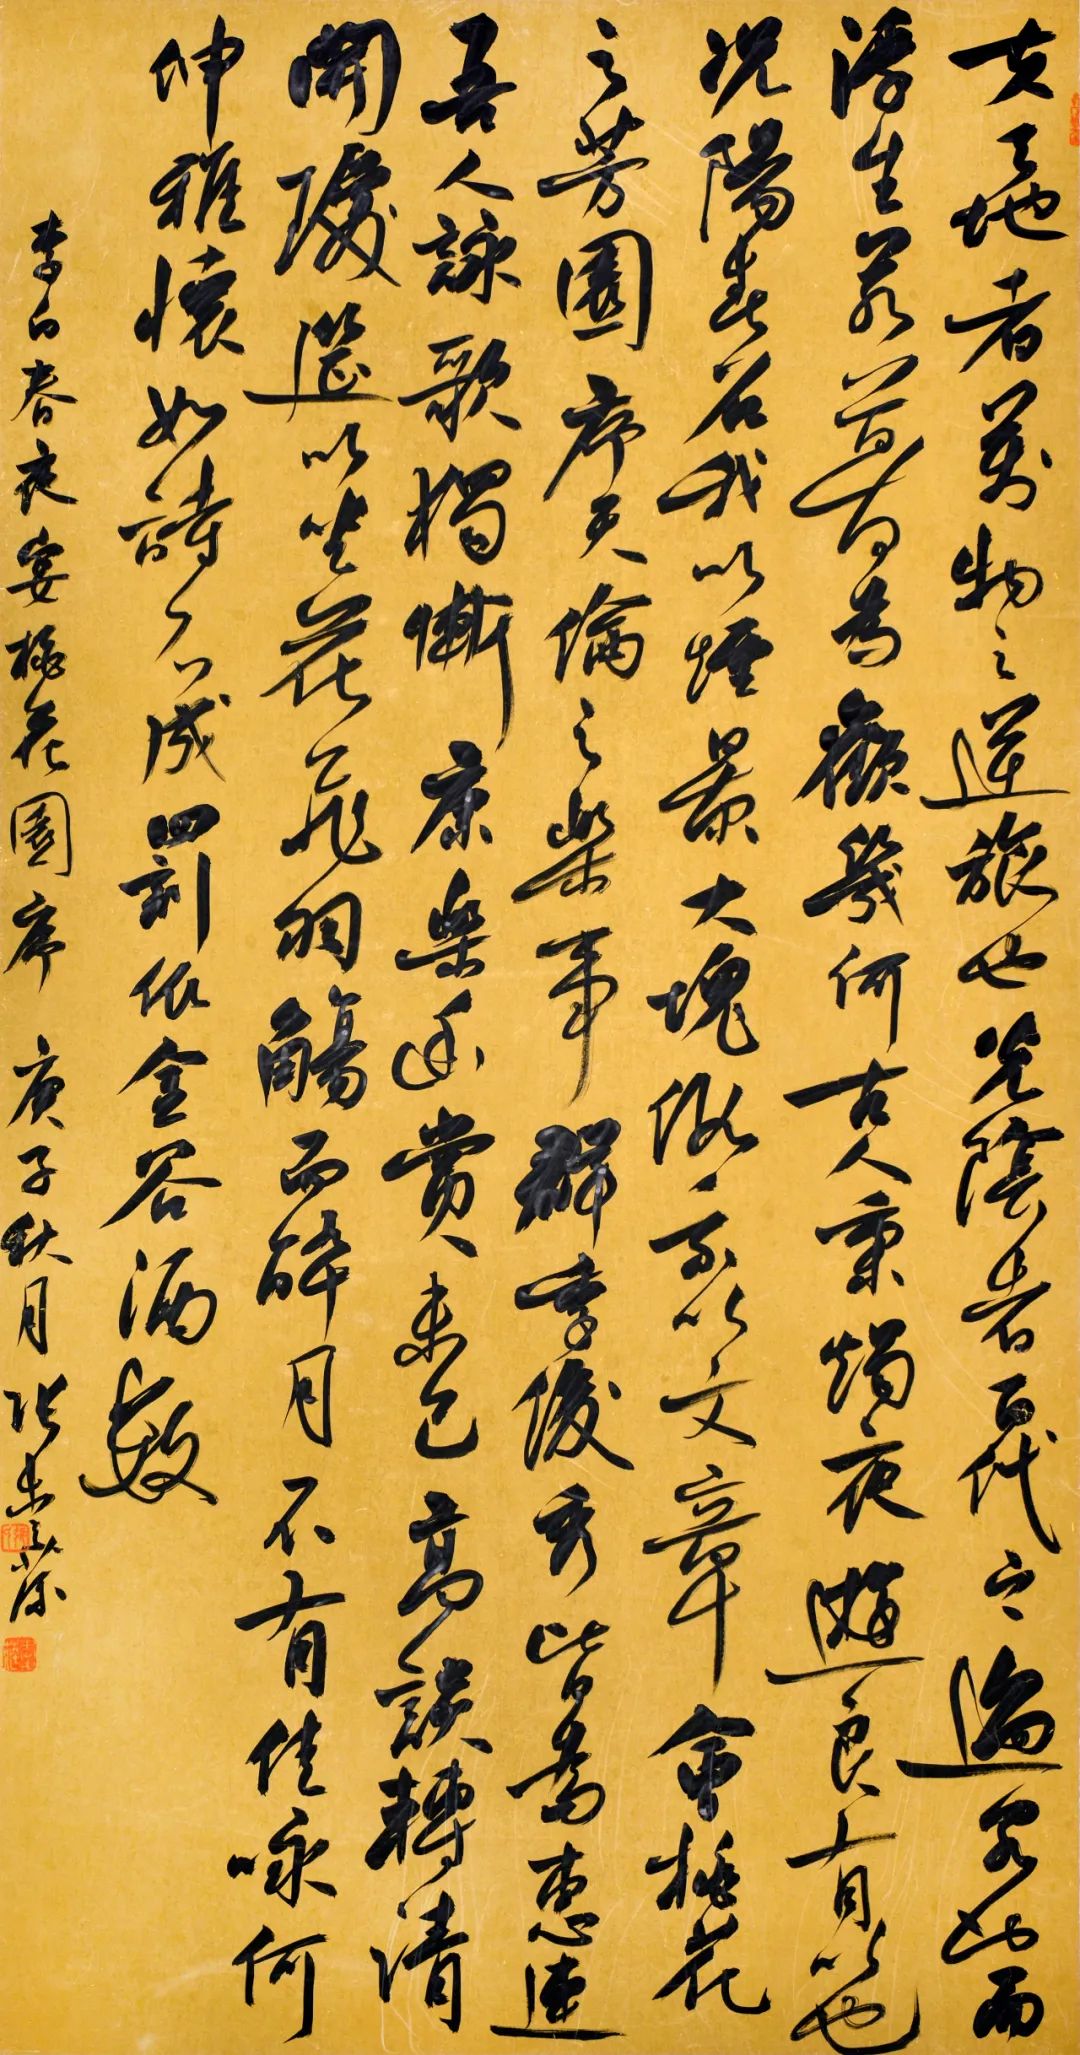 夫天地者萬物之逆旅也光陰者百代之過客也而
浮生若夢為歡幾何古人秉燭夜遊良有以也
況陽春召我以煙景大塊假我以文章會桃花
之芳園序天倫之樂事群季俊秀皆為惠連
吾人詠歌獨慚康樂幽賞未已高談轉清
開瓊筵以坐花飛羽觴而醉月不有佳咏何
伸雅懷如詩不成罰依金谷酒數
李白春夜宴桃花園序 庚子秋月 張